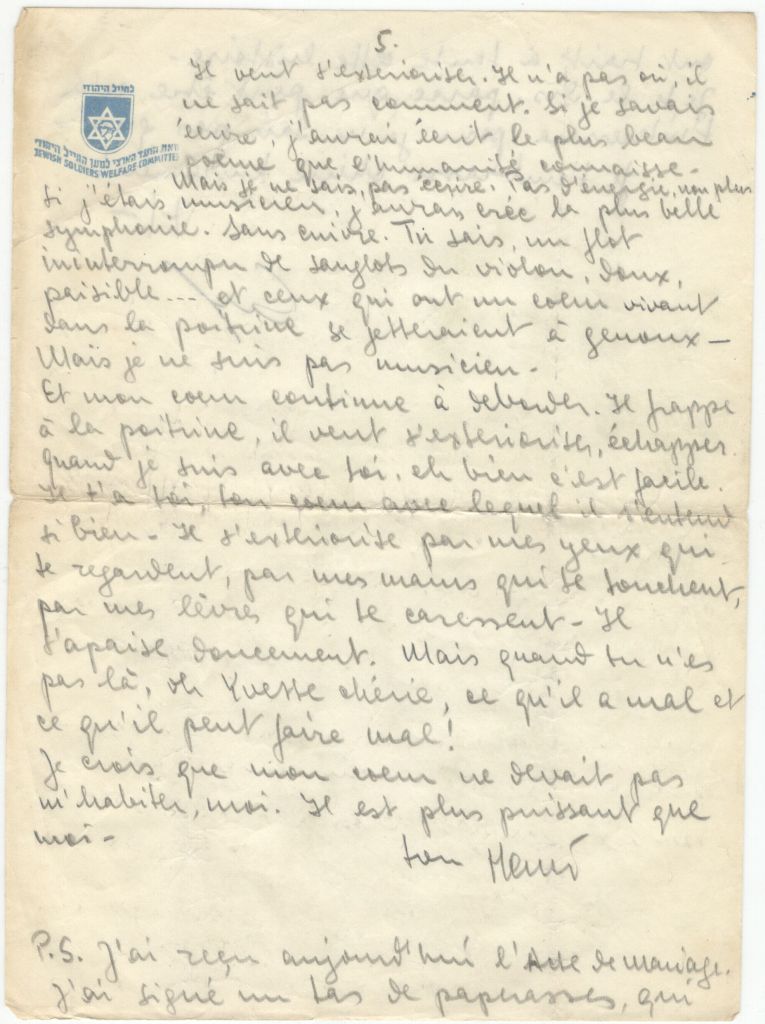 5.
Il veut s'exterioriser. Il n'a pas où, il
ne sait pas comment. Si je savais
écrire, j'aurai écrit le plus beau
poème que l'humanité connaisse -
Mais je ne sais pas écrire. Pas d'énergie, non plus
לחייל היהודי
הועד הארצי למען החייל היהודי
JEWISH SOLDIERS WELFARE COMMITTEE
Si j'étais musicien, j'aurais créé la plus belle
symphonie. Sans cuivre. Tu sais, un flot
ininterrompu de sanglots du violon, doux,
paisible... et ceux qui ont un coeur vivant
dans la poitrine se jetteraient à genoux -
Mais je ne suis pas musicien -
Et mon coeur continue à deborder. Il frappe
à la poitrine, il veut s'exterioriser, échapper.
quand je suis avec toi, eh bien c'est facile.
Il t'a toi, ton coeur avec lequel il s'entend
si bien - Il s'exteriorise par mes yeux qui
te regardent, par mes mains qui te touchent,
par mes lèvres qui te caressent - Il
s'apaise doucement. Mais quand tu n'es
pas là, oh Yvette chérie, ce qu'il a mal et
ce qu'il peut faire mal!
Je crois que mon coeur ne devait pas
m'habiter, moi. Il est plus puissant que
moi -
ton Henri
P.S. J'ai reçu aujourd'hui l'Acte de Mariage.
J'ai signé un tas de paperasses, qui